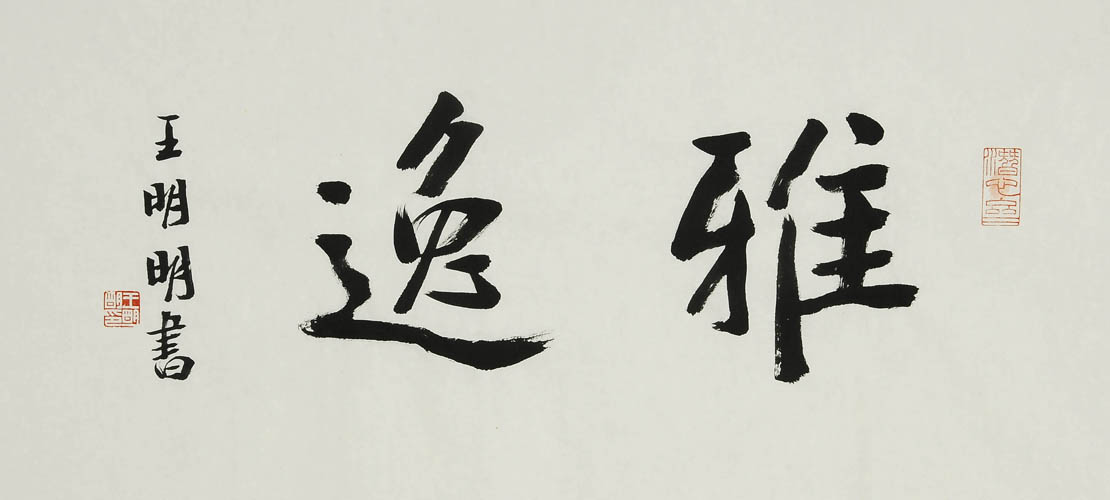 雅逸
王明明書